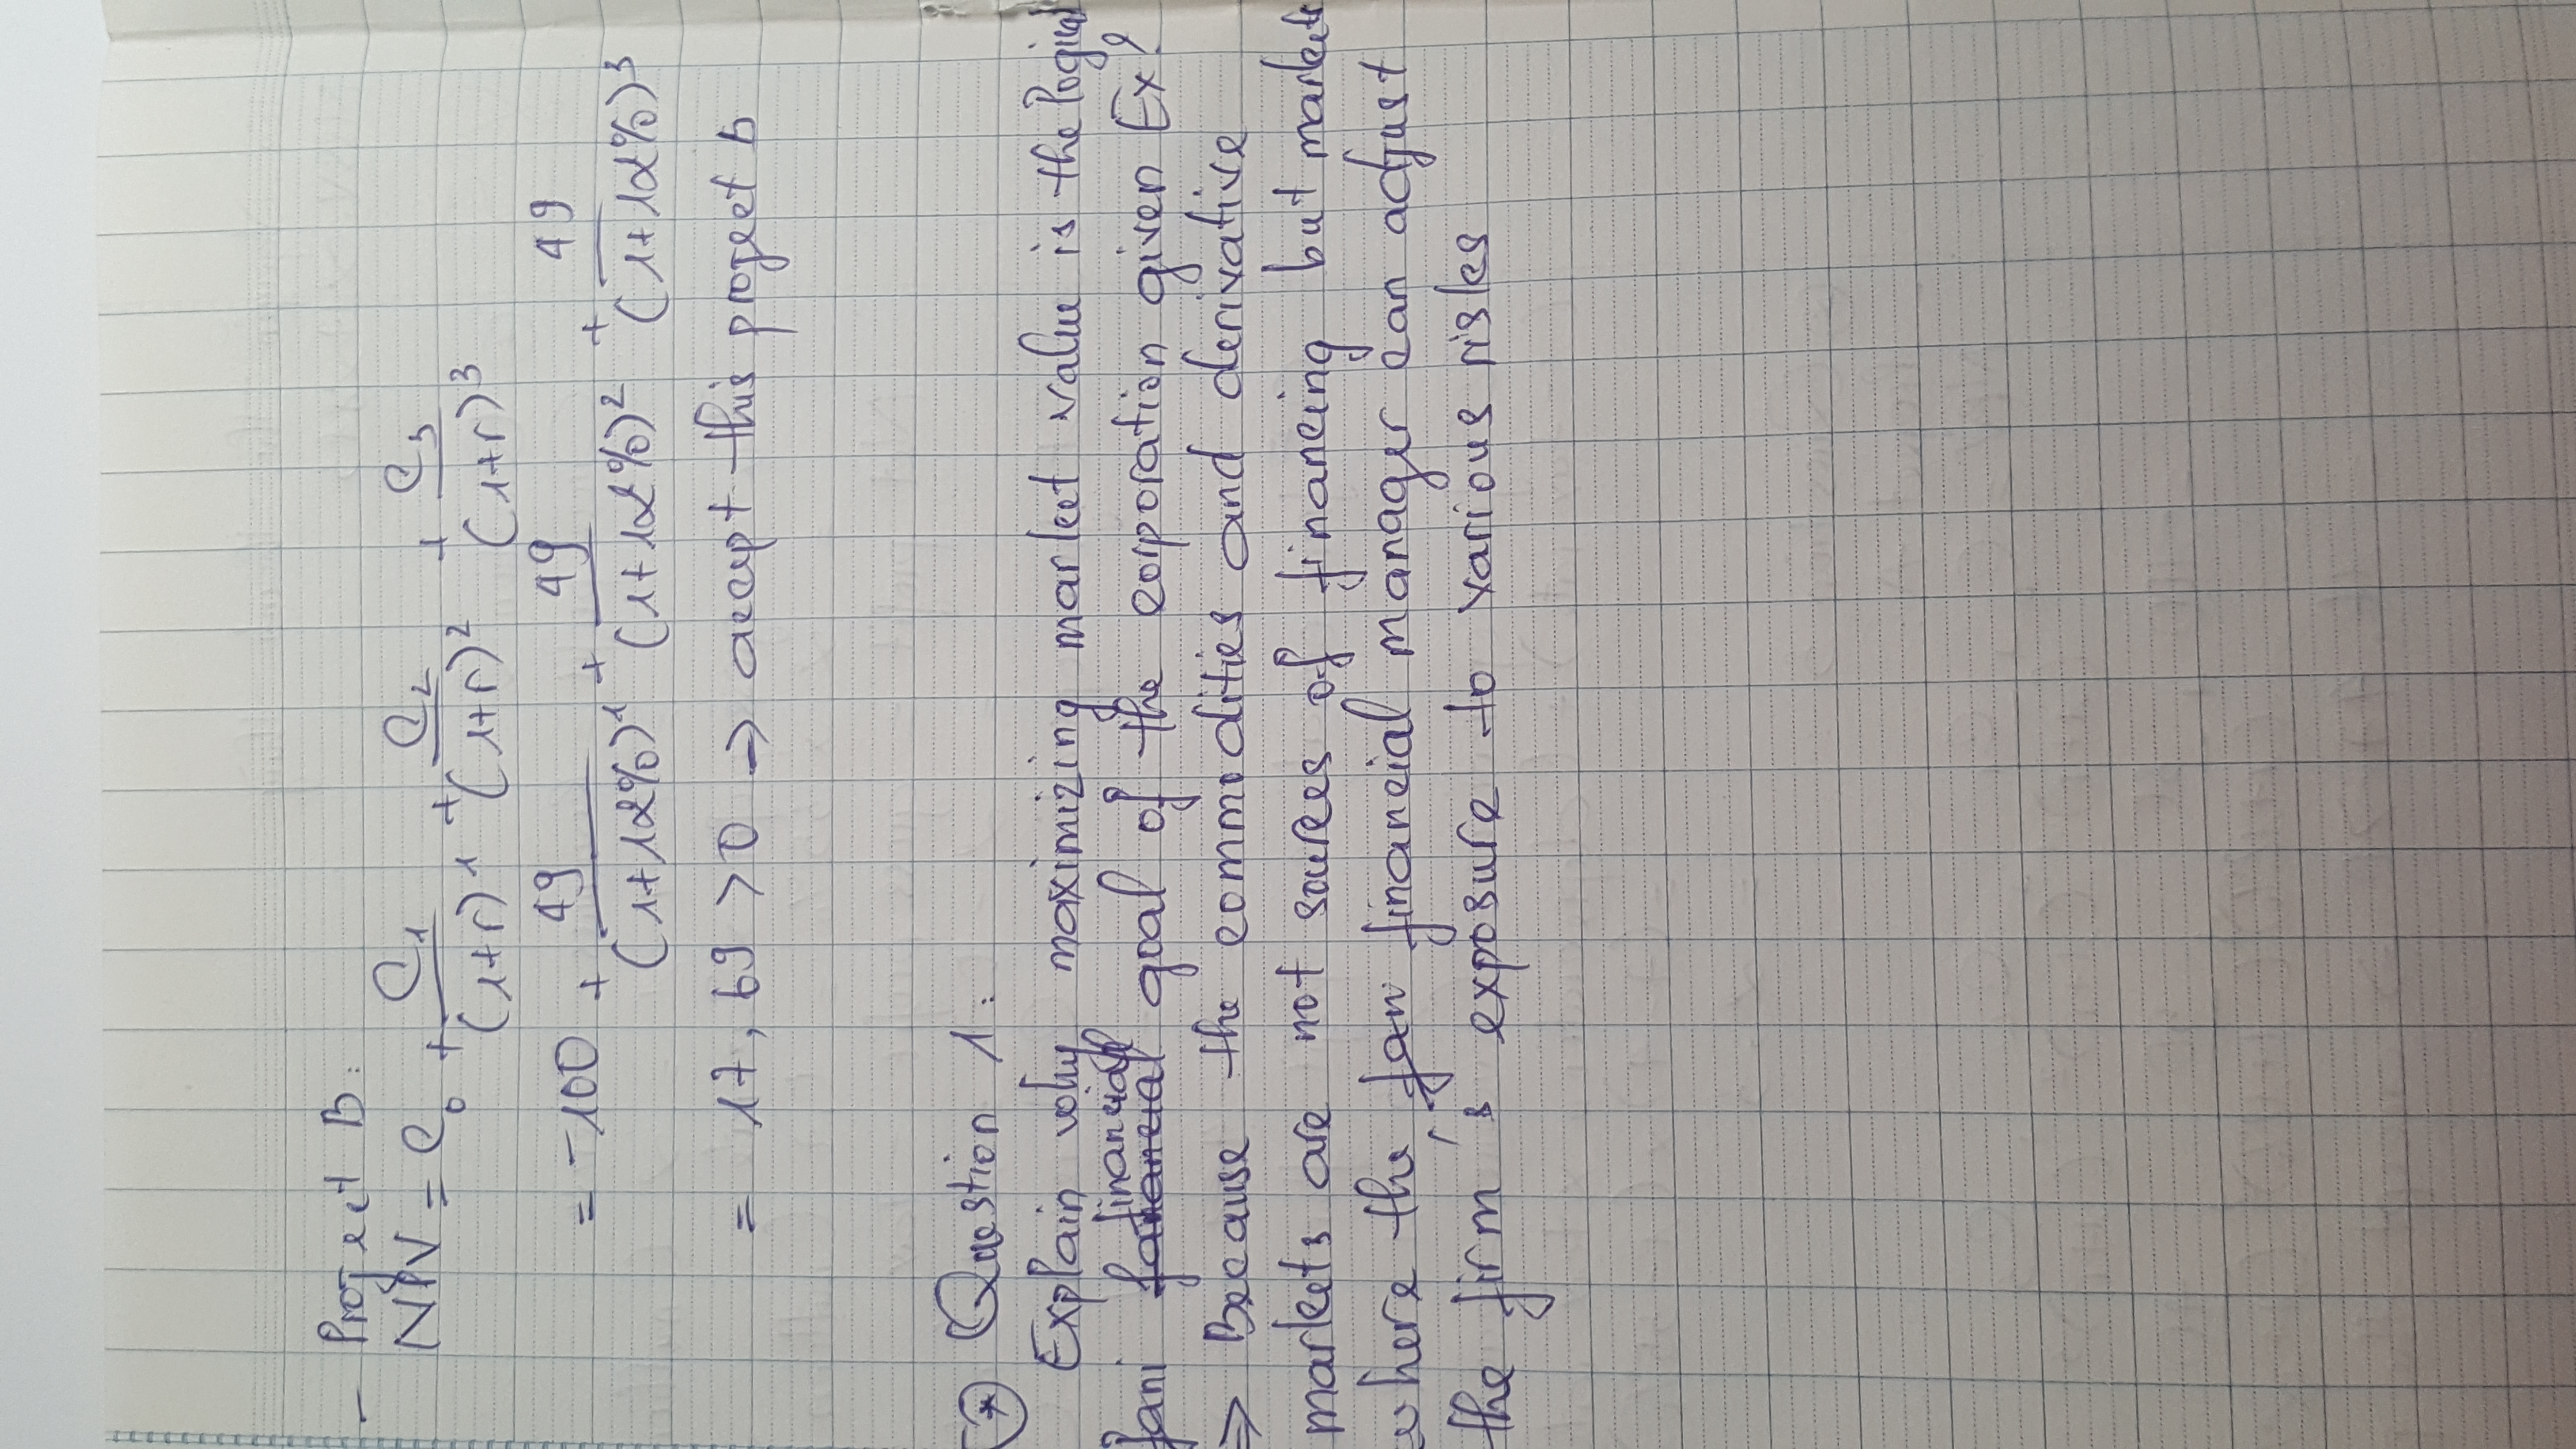 - Projet B:
NPV = C₀ + C₁/(1+r)¹ + C₂/(1+r)² + C₃/(1+r)³
= -100 + 49/(1+12%)¹ + 49/(1+12%)² + 49/(1+12%)³
= 17,69 > 0 → accept this projet b
* Question 1:
Explain why maximizing market value is the logical
financial goal of the corporation given Ex?
⇒ Because the commodities and derivative
markets are not sources of financing but markets
where the financial manager can adjust
the firm's exposure to various risks